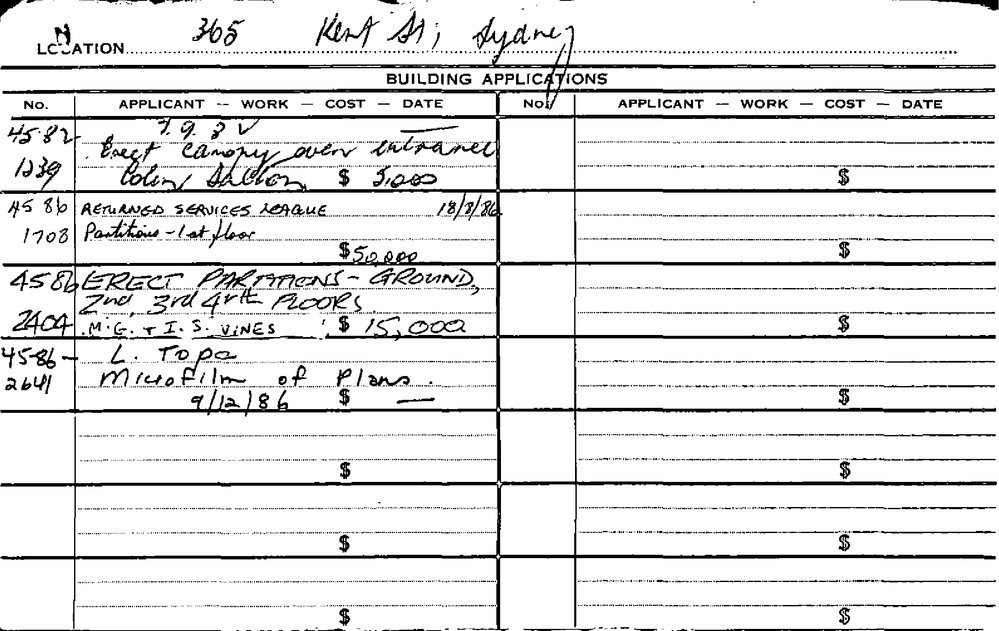 N
LOCATION 365 Kent St; Sydney
BUILDING APPLICATIONS
No. APPLICANT — WORK — COST — DATE No. APPLICANT — WORK — COST — DATE
45-82- 7.9.82 —
Erect canopy over entrance
1239 Colin $ 5,000 $
45 86 RETURNED SERVICES LEAGUE 18/8/86
1708 Partitions - 1st floor
$50,000 $
4586 ERECT PARTATIENS - GROUND,
2nd, 3rd 4rth FLOORS.
2404 M.G. + I.S. VINES $ 15,000 $
45-86- L. Topa
2641 Microfilm of Plans.
9/12/86 $ — $
$ $
$ $
$ $